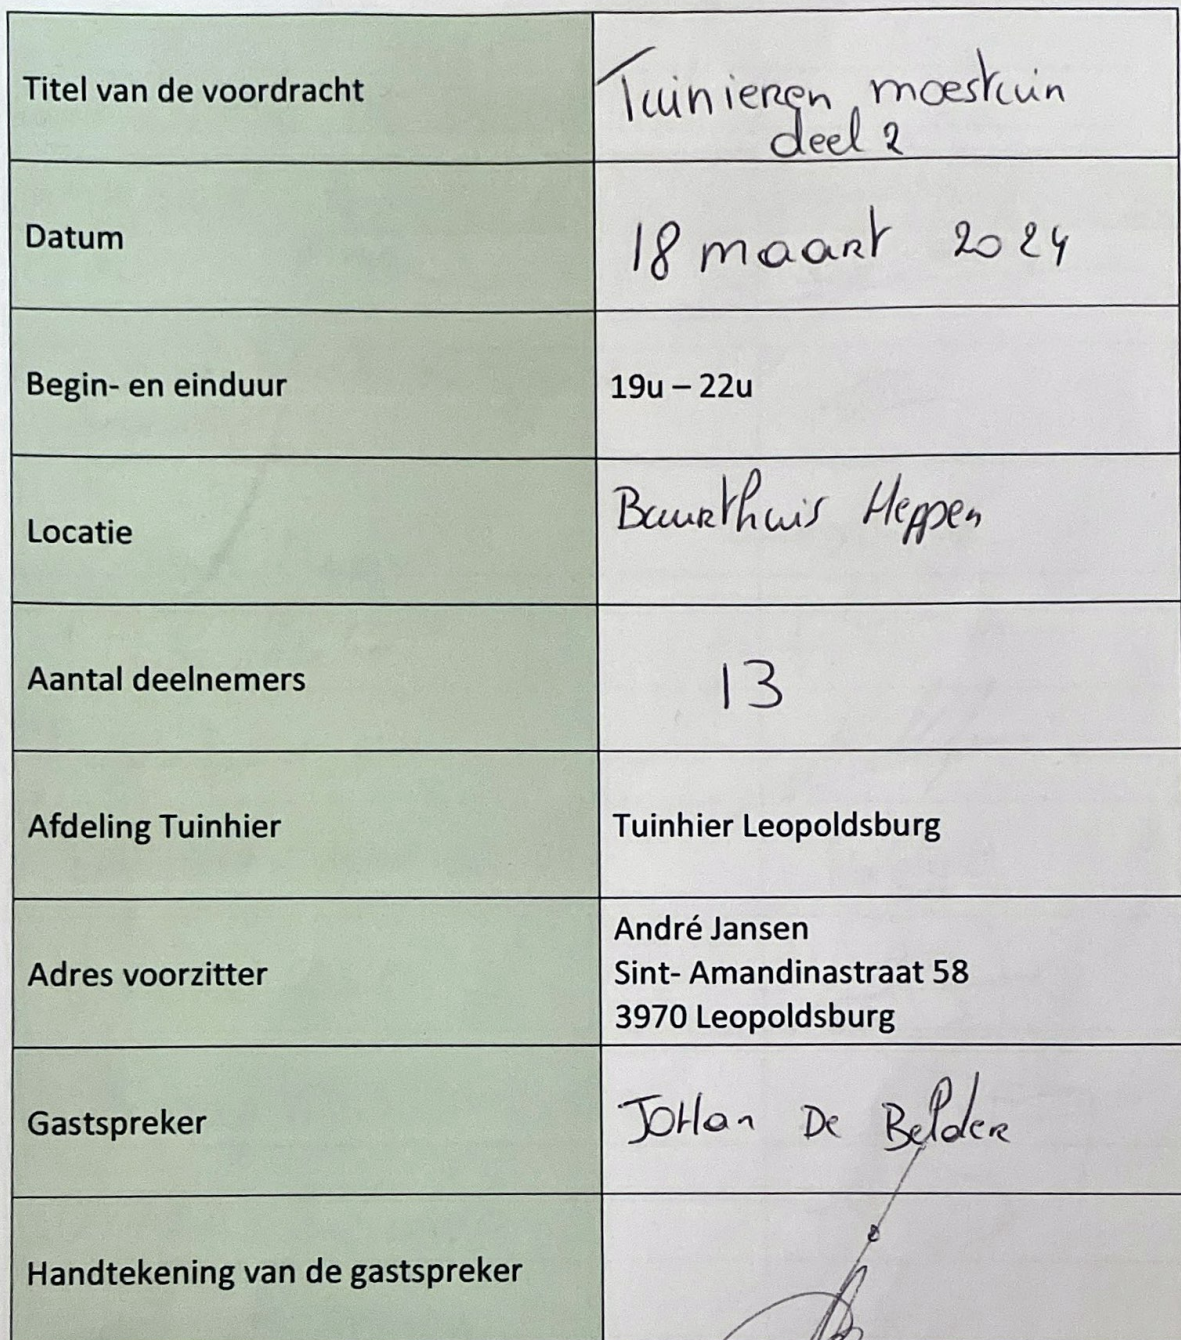 Titel van de voordracht
Tuinieren moestuin
deel 2
Datum
18 maart 2024
Begin- en einduur
19u – 22u
Locatie
Buurthuis Heppen
Aantal deelnemers
13
Afdeling Tuinhier
Tuinhier Leopoldsburg
Adres voorzitter
André Jansen
Sint- Amandinastraat 58
3970 Leopoldsburg
Gastspreker
Johan De Belder
Handtekening van de gastspreker